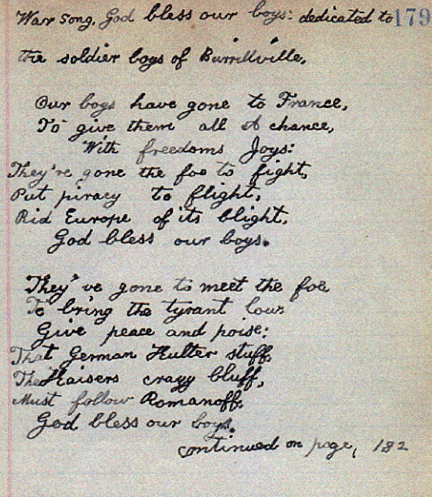 War song, God bless our boys: dedicated to 179
the soldier boys of Burrillville,
Our boys have gone to France,
To give them all A chance,
With freedoms Joys:
They're gone the foe to fight,
Put piracy to flight,
Rid Europe of its blight,
God bless our boys.
They've gone to meet the foe
To bring the tyrant low
Give peace and poise:
That German Kulter stuff,
The Kaisers crazy bluff,
Must follow Romanoff.
God bless our boys.
continued on page, 182